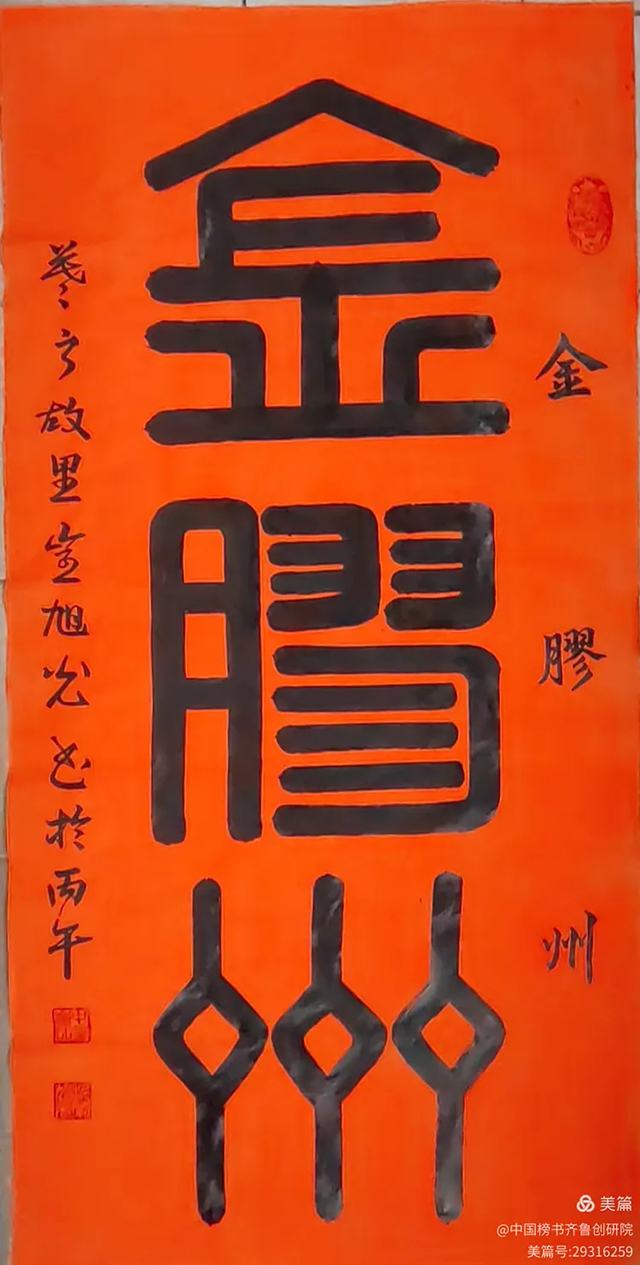 金膠州
金膠州
故里旭光书於丙午
美篇
@中国榜书齐鲁创研院
美篇号:29316259